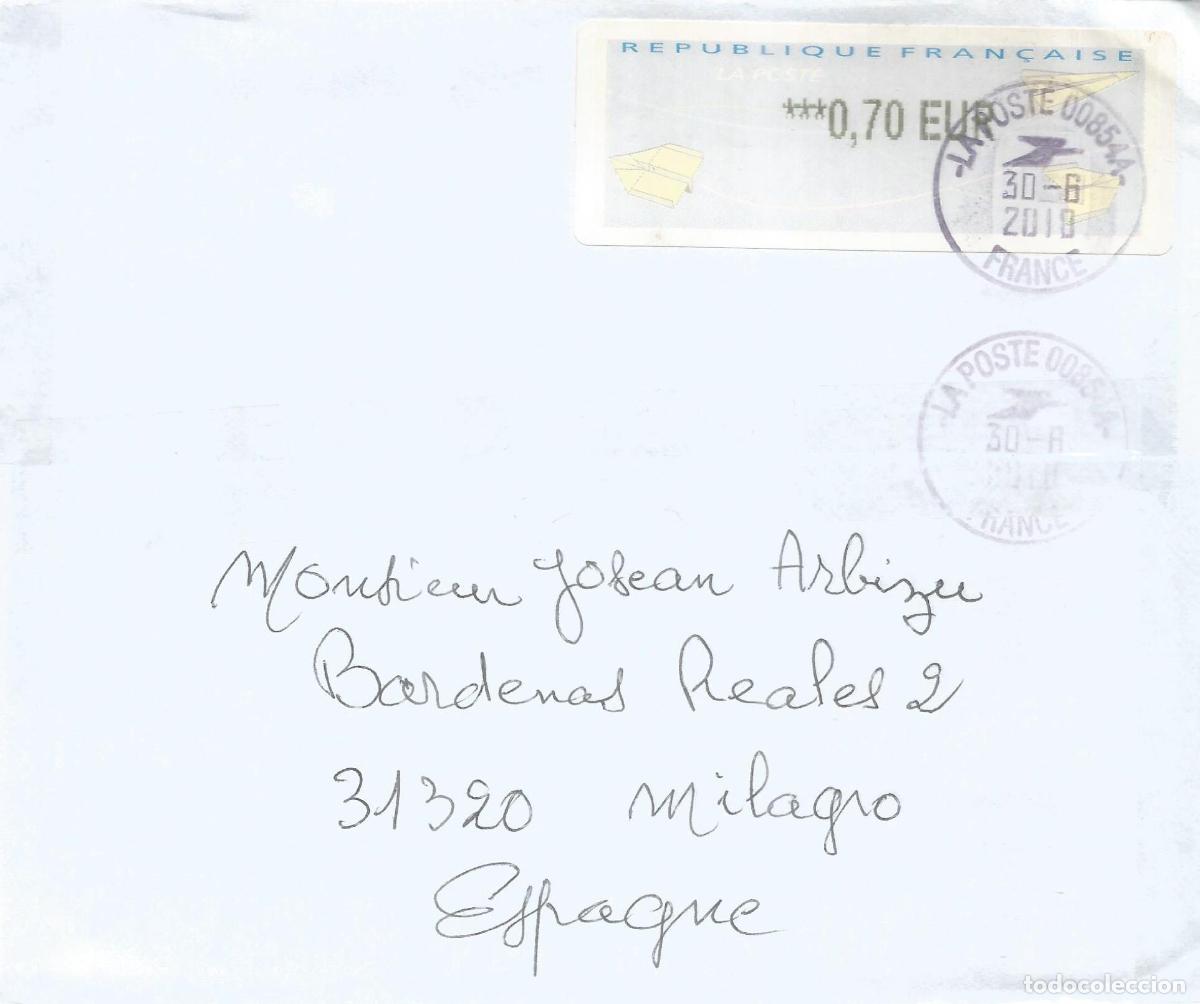 REPUBLIQUE FRANÇAISE
LA POSTE
***0,70 EUR
-LA POSTE 00854A-
30-6
2010
FRANCE
-LA POSTE 00854A-
30-6
2010
FRANCE
Monsieur Josean Arbizu
Bardenas Reales 2
31320 Milagro
Espagne
todocoleccion